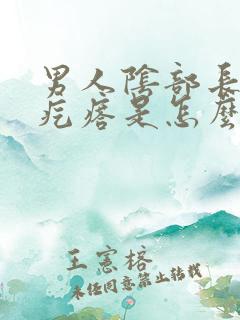 男人陰部長
疙瘩是怎麼
王憲榕
未经同意禁止转载